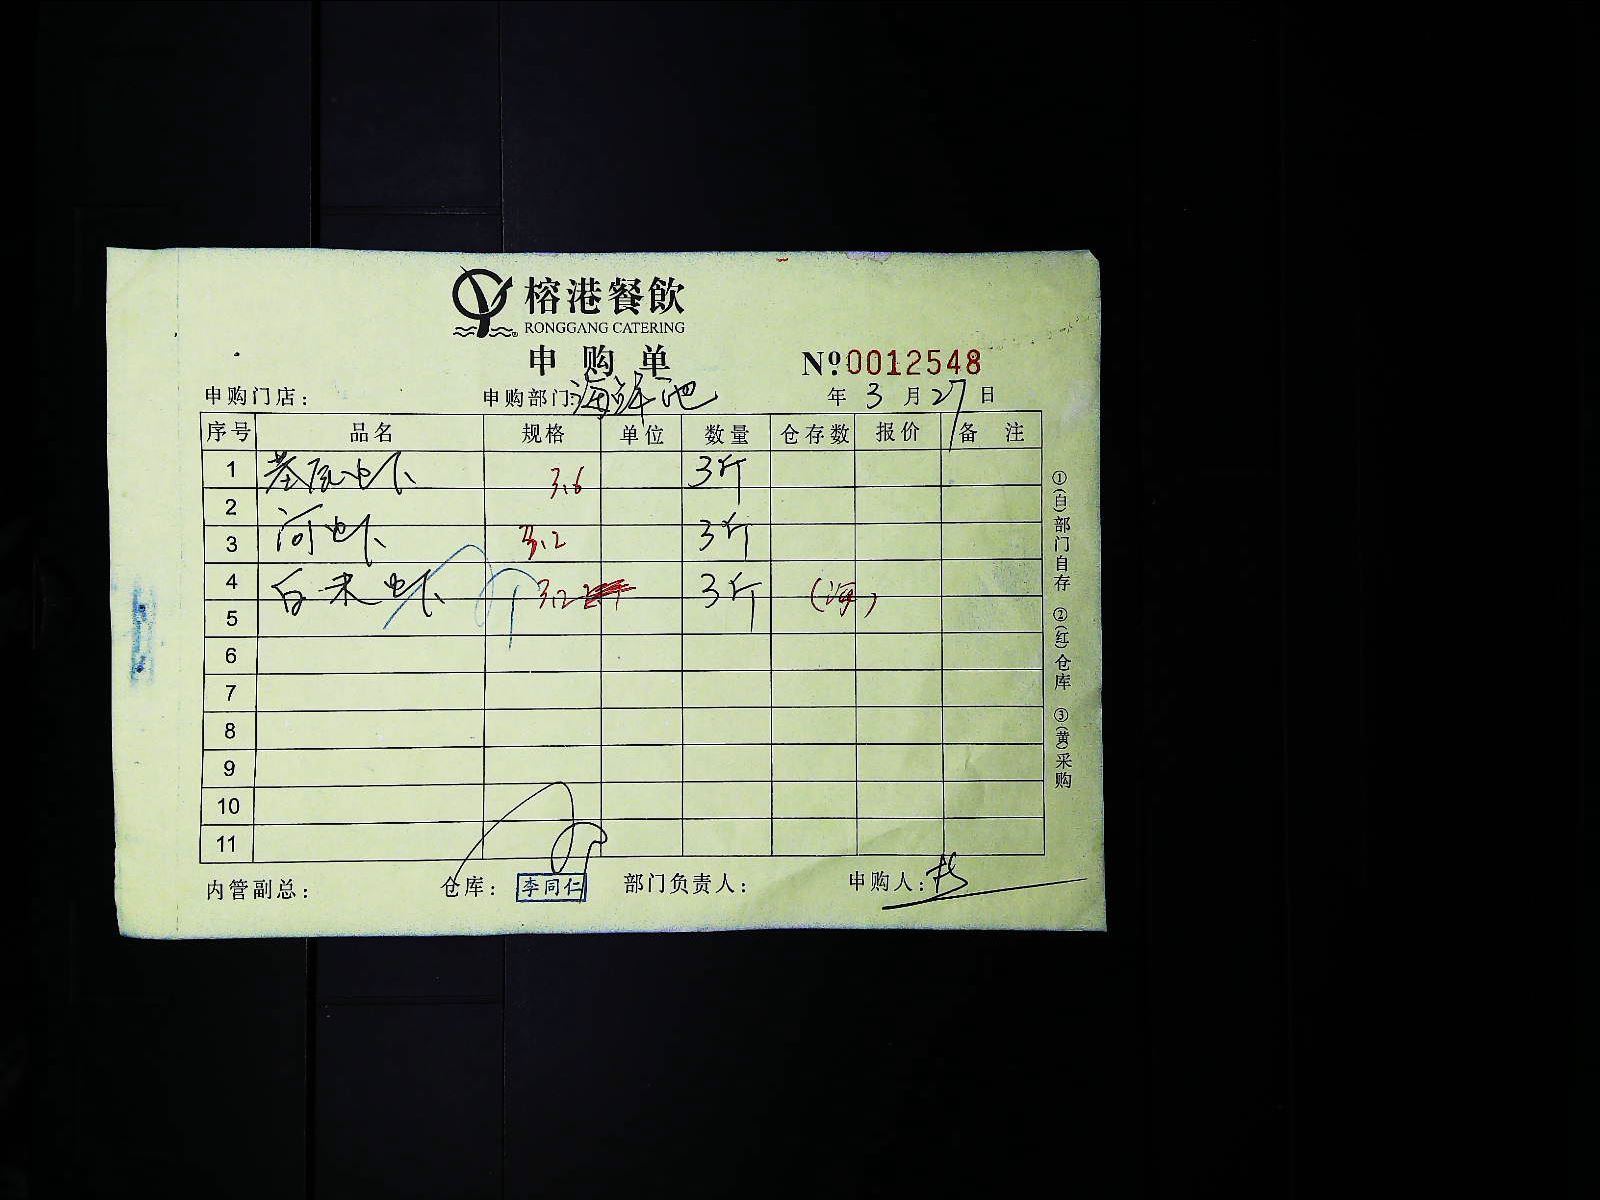 榕港餐飲
RONGGANG CATERING
申购单
Nº0012548
申购门店： 申购部门：海鲜池 年 3 月 27 日
序号 品名 规格 单位 数量 仓存数 报价 备注
1 基尾虾 3.6 3斤
2
3 河虾 3.2 3斤
4 白米虾 3.2 3斤 (海)
5
6
7
8
9
10
11
内管副总： 仓库：李同仁 部门负责人： 申购人：
①(白)部门自存 ②(红)仓库 ③(黄)采购